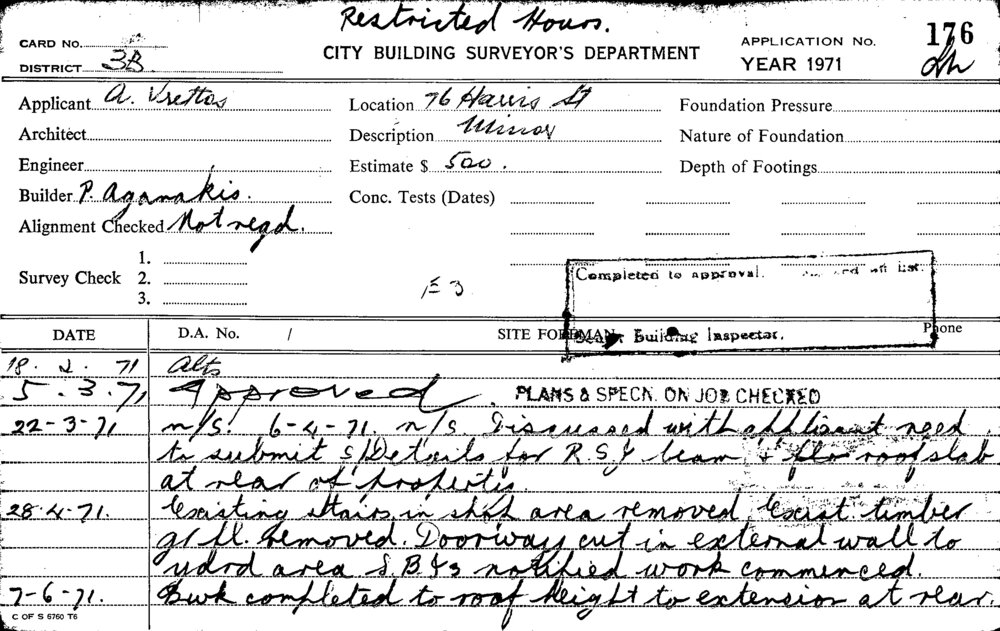 Restricted Hours.
CARD No.
CITY BUILDING SURVEYOR'S DEPARTMENT
APPLICATION No. 176
DISTRICT 3B
YEAR 1971
Applicant A. Vrettos
Location 76 Harris St
Foundation Pressure
Architect
Description Minor
Nature of Foundation
Engineer
Estimate $ 500.
Depth of Footings
Builder P. Aganakis.
Conc. Tests (Dates)
Alignment Checked Not reqd.
Survey Check
1.
2.
3.
E 3
Completed to approval. off list.
Building Inspector.
DATE
D.A. No. /
SITE FOREMAN
Phone
18. 2. 71 Alts
5. 3. 71 Approved. PLANS & SPECN. ON JOB CHECKED
22-3-71 n/s. 6-4-71. n/s. Discussed with applicant need
to submit S/Details for R.S.J. beam & roof slab
at rear of properties.
28-4-71. Existing stairs in shop area removed. Exist timber
gr fl. removed. Doorway cut in external wall to
ydrd area S.B.I's notified work commenced.
7-6-71. Bwk completed to roof height to extension at rear.
C OF S 6760 T6